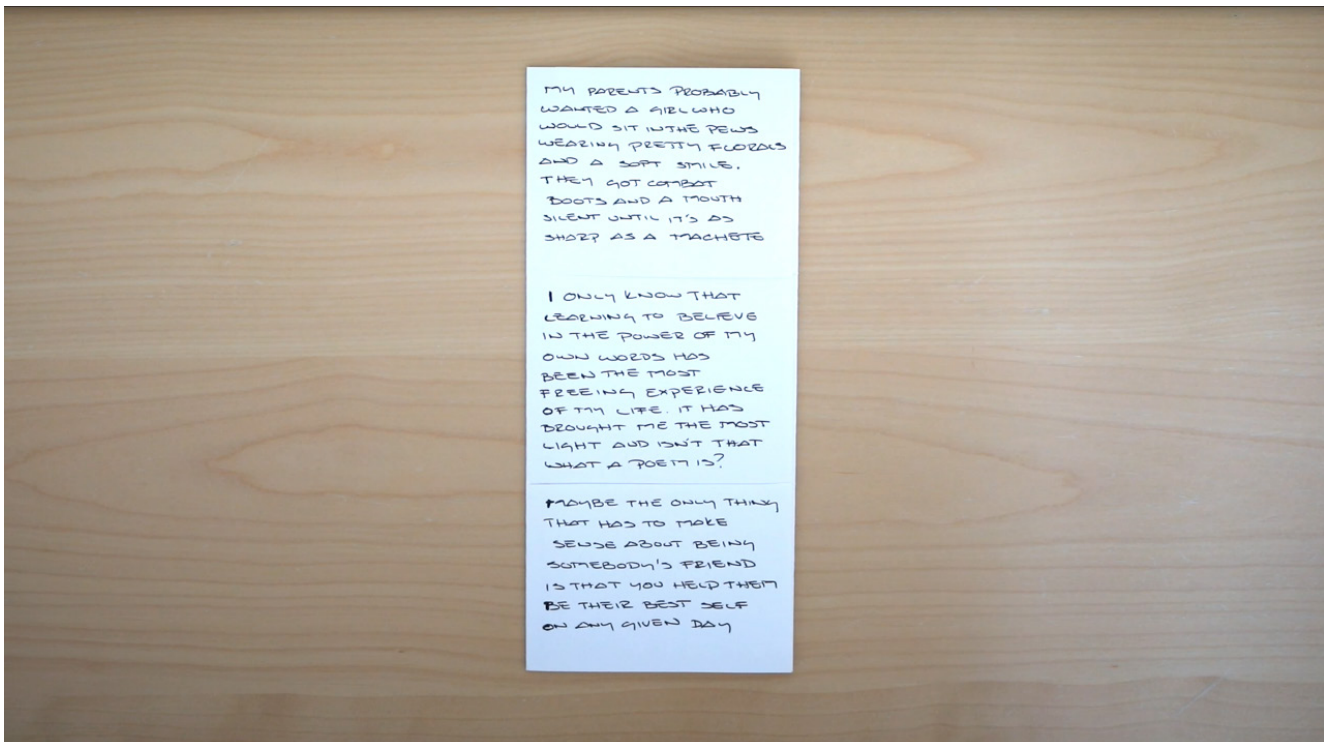 MY PARENTS PROBABLY
WANTED A GIRL WHO
WOULD SIT IN THE PEWS
WEARING PRETTY FLORALS
AND A SOFT SMILE.
THEY GOT COMBAT
BOOTS AND A MOUTH
SILENT UNTIL IT'S AS
SHARP AS A MACHETE
I ONLY KNOW THAT
LEARNING TO BELIEVE
IN THE POWER OF MY
OWN WORDS HAS
BEEN THE MOST
FREEING EXPERIENCE
OF MY LIFE. IT HAS
BROUGHT ME THE MOST
LIGHT AND ISN'T THAT
WHAT A POEM IS?
MAYBE THE ONLY THING
THAT HAS TO MAKE
SENSE ABOUT BEING
SOMEBODY'S FRIEND
IS THAT YOU HELP THEM
BE THEIR BEST SELF
ON ANY GIVEN DAY